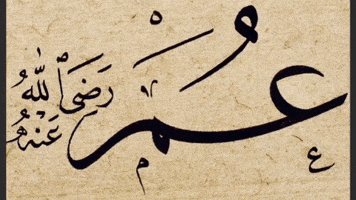 عُمَرُ
رَضَيَ اللّٰهُ
عَنْهُ